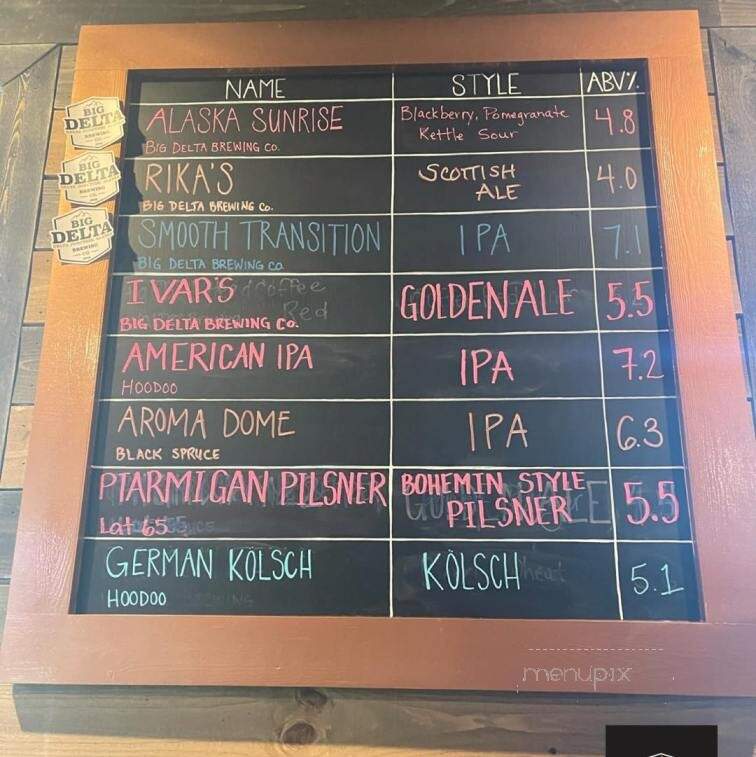 NAME STYLE ABV%
BIG
DELTA
BREWING
ALASKA SUNRISE Blackberry, Pomegranate 4.8
Kettle Sour
BIG DELTA BREWING CO.
BIG
DELTA
BREWING
RIKA'S SCOTTISH 4.0
ALE
BIG DELTA BREWING CO.
BIG
DELTA
BREWING
SMOOTH TRANSITION IPA 7.1
BIG DELTA BREWING CO.
IVAR'S GOLDEN ALE 5.5
Coffee
Red
BIG DELTA BREWING CO.
AMERICAN IPA IPA 7.2
HOODOO
AROMA DOME IPA 6.3
BLACK SPRUCE
PTARMIGAN PILSNER BOHEMIN STYLE 5.5
PILSNER
Lat 65
GERMAN KÖLSCH KÖLSCH 5.1
HOODOO
menupix